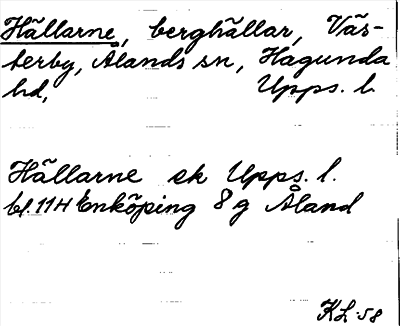 Hällarne, berghällar, Väs-
terby, Ålands sn, Hagunda
hd, Upps. l.
Hällarne ek Upps. l.
bl. 114 Enköping 8 g Åland
KL-58